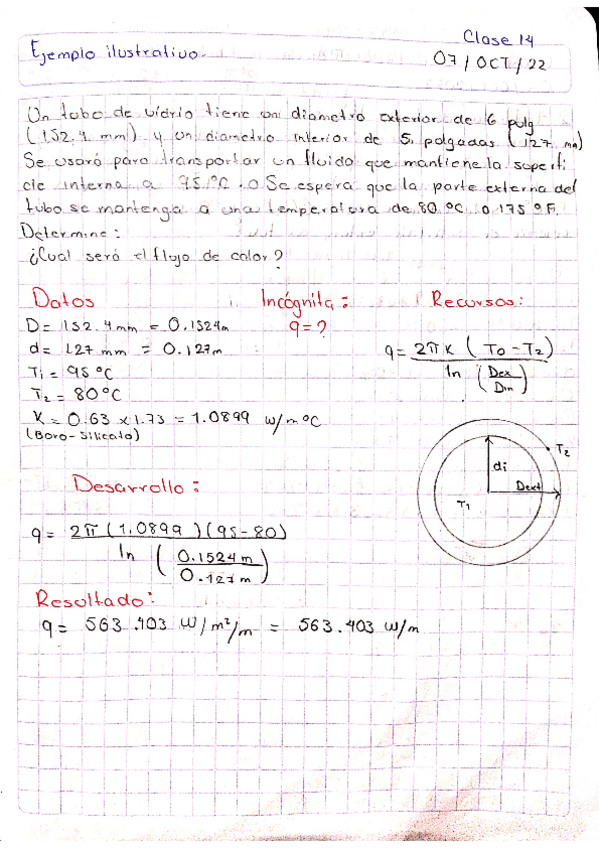 Clase 14
Ejemplo ilustrativo.
07/OCT/22
Un tubo de vidrio tiene un diametro exterior de 6 pulg
(152.4 mm) y un diametro interior de 5 pulgadas (127 mm)
Se usará para transportar un fluido que mantiene la superfi
cie interna a 95 °C. o Se espera que la parte externa del
tubo se mantenga a una temperatura de 80 °C o 175 °F.
Determine:
¿Cual será el flujo de calor?
Datos
Incógnita:
Recursos:
D= 152.4 mm = 0.1524m
q= ?
d= 127 mm = 0.127m
q= 2πK (To-T2) / ln (Dex/Din)
Ti= 95 °C
T2= 80°C
K= 0.63 x 1.73 = 1.0899 W/m°C
(Boro-Silicato)
T2
di
Dext
T1
Desarrollo:
q= 2π(1.0899)(95-80) / ln (0.1524m/0.127m)
Resultado:
q= 563.403 W/m²/m = 563.403 W/m